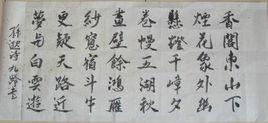 香閣東山下
煙花象外幽
懸燈千嶂夕
卷幔五湖秋
畫壁餘鴻雁
紗窗宿斗牛
更疑天路近
夢與白雲遊
孫逖诗